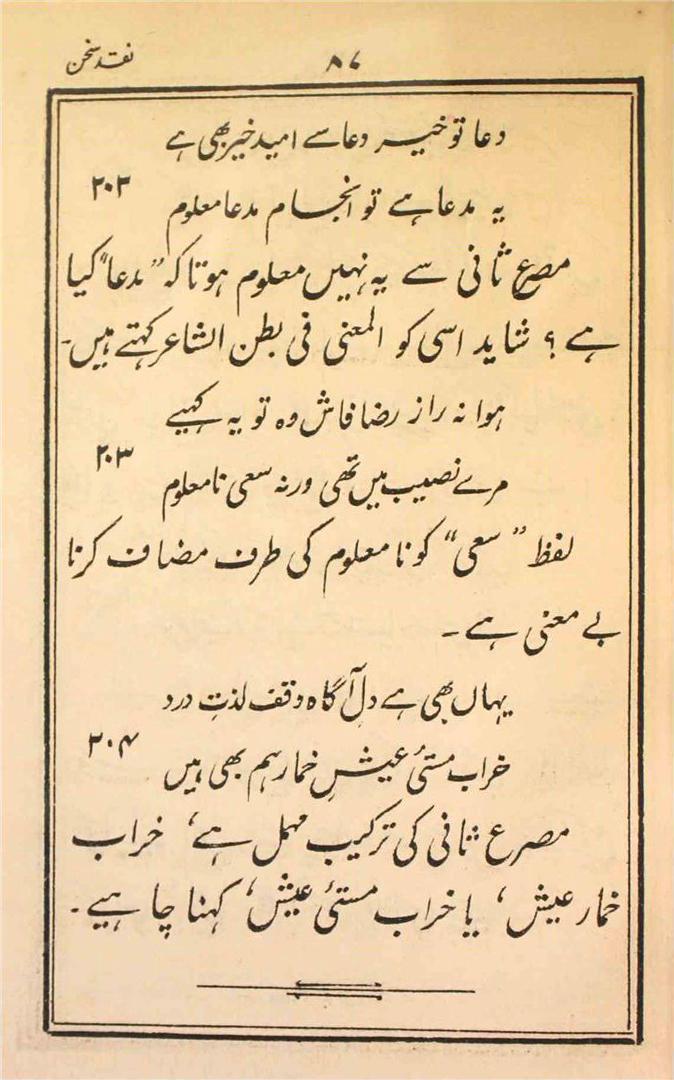 نقد سخن
۸۷
دعا تو خیر دعا سے امید خیر بھی ہے
۲۰۳
یہ مدعا ہے تو انجام مدعا معلوم
مصرع ثانی سے یہ نہیں معلوم ہوتا کہ ”مدعا“ کیا
ہے؟ شاید اسی کو المعنی فی بطن الشاعر کہتے ہیں۔
ہوا نہ راز رضا فاش وہ تو یہ کہیے
۲۰۳
مرے نصیب میں تھی ورنہ سعی نا معلوم
لفظ ”سعی“ کو نا معلوم کی طرف مضاف کرنا
بے معنی ہے۔
یہاں بھی ہے دلِ آگاہ وقف لذتِ درد
۲۰۴
خراب مستیٔ عیشِ خمار ہم بھی ہیں
مصرع ثانی کی ترکیب مہمل ہے، خراب
خمار عیش، یا خراب مستیٔ عیش، کہنا چاہیے۔